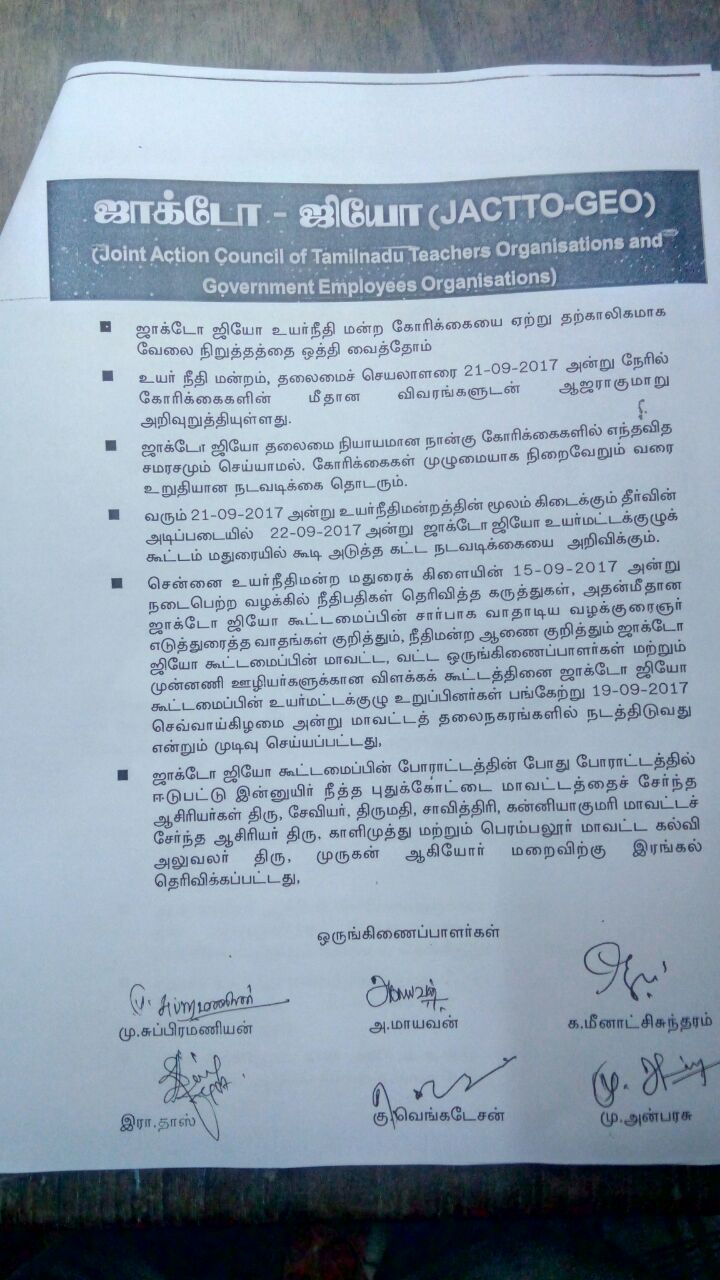 ஜாக்டோ - ஜியோ (JACTTO-GEO)
(Joint Action Council of Tamilnadu Teachers Organisations and
Government Employees Organisations)
ஜாக்டோ ஜியோ உயர்நீதி மன்ற கோரிக்கையை ஏற்று தற்காலிகமாக
வேலை நிறுத்தத்தை ஒத்தி வைத்தோம்
உயர் நீதி மன்றம், தலைமைச் செயலாளரை 21-09-2017 அன்று நேரில்
கோரிக்கைகளின் மீதான விவரங்களுடன் ஆஜராகுமாறு
அறிவுறுத்தியுள்ளது.
ஜாக்டோ ஜியோ தலைமை நியாயமான நான்கு கோரிக்கைகளில் எந்தவித
சமரசமும் செய்யாமல். கோரிக்கைகள் முழுமையாக நிறைவேறும் வரை
உறுதியான நடவடிக்கை தொடரும்.
வரும் 21-09-2017 அன்று உயர்நீதிமன்றத்தின் மூலம் கிடைக்கும் தீர்வின்
அடிப்படையில் 22-09-2017 அன்று ஜாக்டோ ஜியோ உயர்மட்டக்குழுக்
கூட்டம் மதுரையில் கூடி அடுத்த கட்ட நடவடிக்கையை அறிவிக்கும்.
சென்னை உயர்நீதிமன்ற மதுரைக் கிளையின் 15-09-2017 அன்று
நடைபெற்ற வழக்கில் நீதிபதிகள் தெரிவித்த கருத்துகள், அதன்மீதான
ஜாக்டோ ஜியோ கூட்டமைப்பின் சார்பாக வாதாடிய வழக்குரைஞர்
எடுத்துரைத்த வாதங்கள் குறித்தும், நீதிமன்ற ஆணை குறித்தும் ஜாக்டோ
ஜியோ கூட்டமைப்பின் மாவட்ட, வட்ட ஒருங்கிணைப்பாளர்கள் மற்றும்
முன்னணி ஊழியர்களுக்கான விளக்கக் கூட்டத்தினை ஜாக்டோ ஜியோ
கூட்டமைப்பின் உயர்மட்டக்குழு உறுப்பினர்கள் பங்கேற்று 19-09-2017
செவ்வாய்கிழமை அன்று மாவட்டத் தலைநகரங்களில் நடத்திடுவது
என்றும் முடிவு செய்யப்பட்டது,
ஜாக்டோ ஜியோ கூட்டமைப்பின் போராட்டத்தின் போது போராட்டத்தில்
ஈடுபட்டு இன்னுயிர் நீத்த புதுக்கோட்டை மாவட்டத்தைச் சேர்ந்த
ஆசிரியர்கள் திரு, சேவியர், திருமதி, சாவித்திரி, கன்னியாகுமரி மாவட்டச்
சேர்ந்த ஆசிரியர் திரு. காளிமுத்து மற்றும் பெரம்பலூர் மாவட்ட கல்வி
அலுவலர் திரு, முருகன் ஆகியோர் மறைவிற்கு இரங்கல்
தெரிவிக்கப்பட்டது,
ஒருங்கிணைப்பாளர்கள்
மு.சுப்பிரமணியன் அ.மாயவன் க.மீனாட்சிசுந்தரம்
இரா.தாஸ் கு.வெங்கடேசன் மு.அன்பரசு